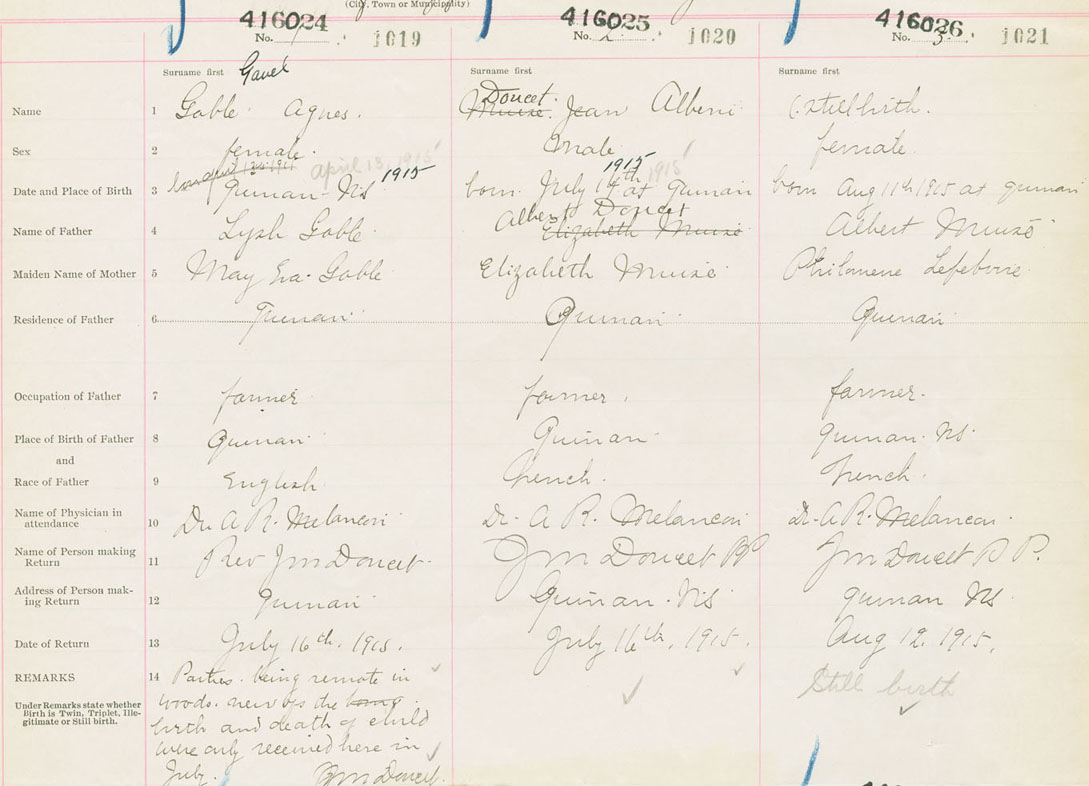 (City, Town or Municipality)
416024 416025 416026
No. 1 1019 No. 2 1020 No. 3 1021
Surname first Gavel Surname first Surname first
Doucet.
Name 1 Goble Agnes. Muise. Jean Albeni (Stillbirth.
Sex 2 female. Male female.
april 13, 1915 1915 1915
Date and Place of Birth 3 born april 13th 1915 Quinan NS 1915 born July 14th at Quinan born Aug 11th 1915 at Quinan
Albert Doucet
Name of Father 4 Lysh Goble Elizabeth Muise Albert Muise
Maiden Name of Mother 5 May Eva Goble Elizabeth Muise Philomene Lefebvre
Residence of Father 6 Quinan Quinan Quinan
Occupation of Father 7 farmer farmer. farmer.
Place of Birth of Father 8 Quinan Quinan Quinan NS
and
Race of Father 9 English French. French.
Name of Physician in
attendance 10 Dr. A R. Melancon Dr. A R. Melancon Dr. A R. Melancon.
Name of Person making
Return 11 Rev J m Doucet J m Doucet PP J m Doucet P P.
Address of Person mak-
ing Return 12 Quinan Quinan. NS Quinan NS
Date of Return 13 July 16th. 1915. July 16th, 1915. Aug 12, 1915.
REMARKS 14 Parties being remote in Still birth
Under Remarks state whether
Birth is Twin, Triplet, Ille-
gitimate or Still birth.
woods. news of the being
birth and death of child
were only received here in
July. J m Doucet.